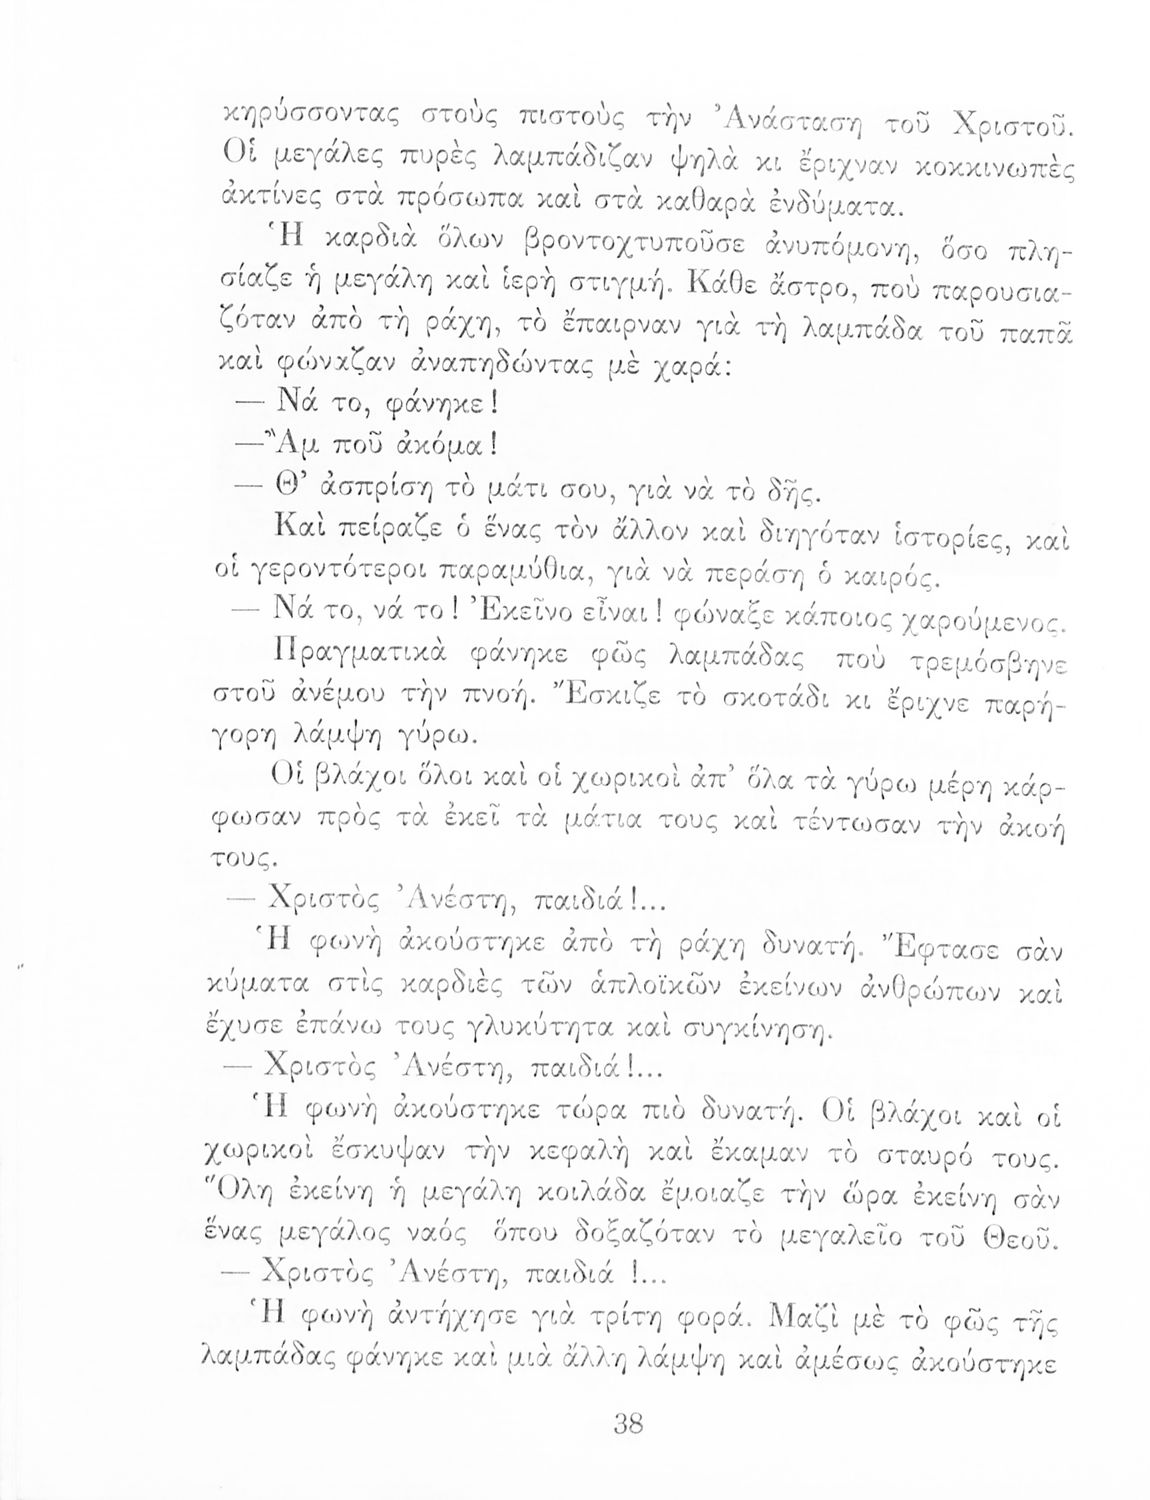 κηρύσσοντας στοὺς πιστοὺς τὴν Ἀνάσταση τοῦ Χριστοῦ.
Οἱ μεγάλες πυρὲς λαμπάδιζαν ψηλὰ κι ἔριχναν κοκκινωπὲς
ἀκτίνες στὰ πρόσωπα καὶ στὰ καθαρὰ ἐνδύματα.
Ἡ καρδιὰ ὅλων βροντοχτυποῦσε ἀνυπόμονη, ὅσο πλη-
σίαζε ἡ μεγάλη καὶ ἱερὴ στιγμή. Κάθε ἄστρο, ποὺ παρουσια-
ζόταν ἀπὸ τὴ ράχη, τὸ ἔπαιρναν γιὰ τὴ λαμπάδα τοῦ παπᾶ
καὶ φώναζαν ἀναπηδώντας μὲ χαρά:
— Νά το, φάνηκε!
—Ἂμ ποῦ ἀκόμα!
— Θ’ ἀσπρίση τὸ μάτι σου, γιὰ νὰ τὸ δῆς.
Καὶ πείραζε ὁ ἕνας τὸν ἄλλον καὶ διηγόταν ἱστορίες, καὶ
οἱ γεροντότεροι παραμύθια, γιὰ νὰ περάση ὁ καιρός.
— Νά το, νά το! Ἐκεῖνο εἶναι! φώναξε κάποιος χαρούμενος.
Πραγματικὰ φάνηκε φῶς λαμπάδας ποὺ τρεμόσβηνε
στοῦ ἀνέμου τὴν πνοή. Ἔσκιζε τὸ σκοτάδι κι ἔριχνε παρή-
γορη λάμψη γύρω.
Οἱ βλάχοι ὅλοι καὶ οἱ χωρικοὶ ἀπ’ ὅλα τὰ γύρω μέρη κάρ-
φωσαν πρὸς τὰ ἐκεῖ τὰ μάτια τους καὶ τέντωσαν τὴν ἀκοή
τους.
— Χριστὸς Ἀνέστη, παιδιά!...
Ἡ φωνὴ ἀκούστηκε ἀπὸ τὴ ράχη δυνατή. Ἔφτασε σὰν
κύματα στὶς καρδιὲς τῶν ἁπλοϊκῶν ἐκείνων ἀνθρώπων καὶ
ἔχυσε ἐπάνω τους γλυκύτητα καὶ συγκίνηση.
— Χριστὸς Ἀνέστη, παιδιά!...
Ἡ φωνὴ ἀκούστηκε τώρα πιὸ δυνατή. Οἱ βλάχοι καὶ οἱ
χωρικοὶ ἔσκυψαν τὴν κεφαλὴ καὶ ἔκαμαν τὸ σταυρό τους.
Ὅλη ἐκείνη ἡ μεγάλη κοιλάδα ἔμοιαζε τὴν ὥρα ἐκείνη σὰν
ἕνας μεγάλος ναός ὅπου δοξαζόταν τὸ μεγαλεῖο τοῦ Θεοῦ.
— Χριστὸς Ἀνέστη, παιδιά !...
Ἡ φωνὴ ἀντήχησε γιὰ τρίτη φορά. Μαζὶ μὲ τὸ φῶς τῆς
λαμπάδας φάνηκε καὶ μιὰ ἄλλη λάμψη καὶ ἀμέσως ἀκούστηκε
38